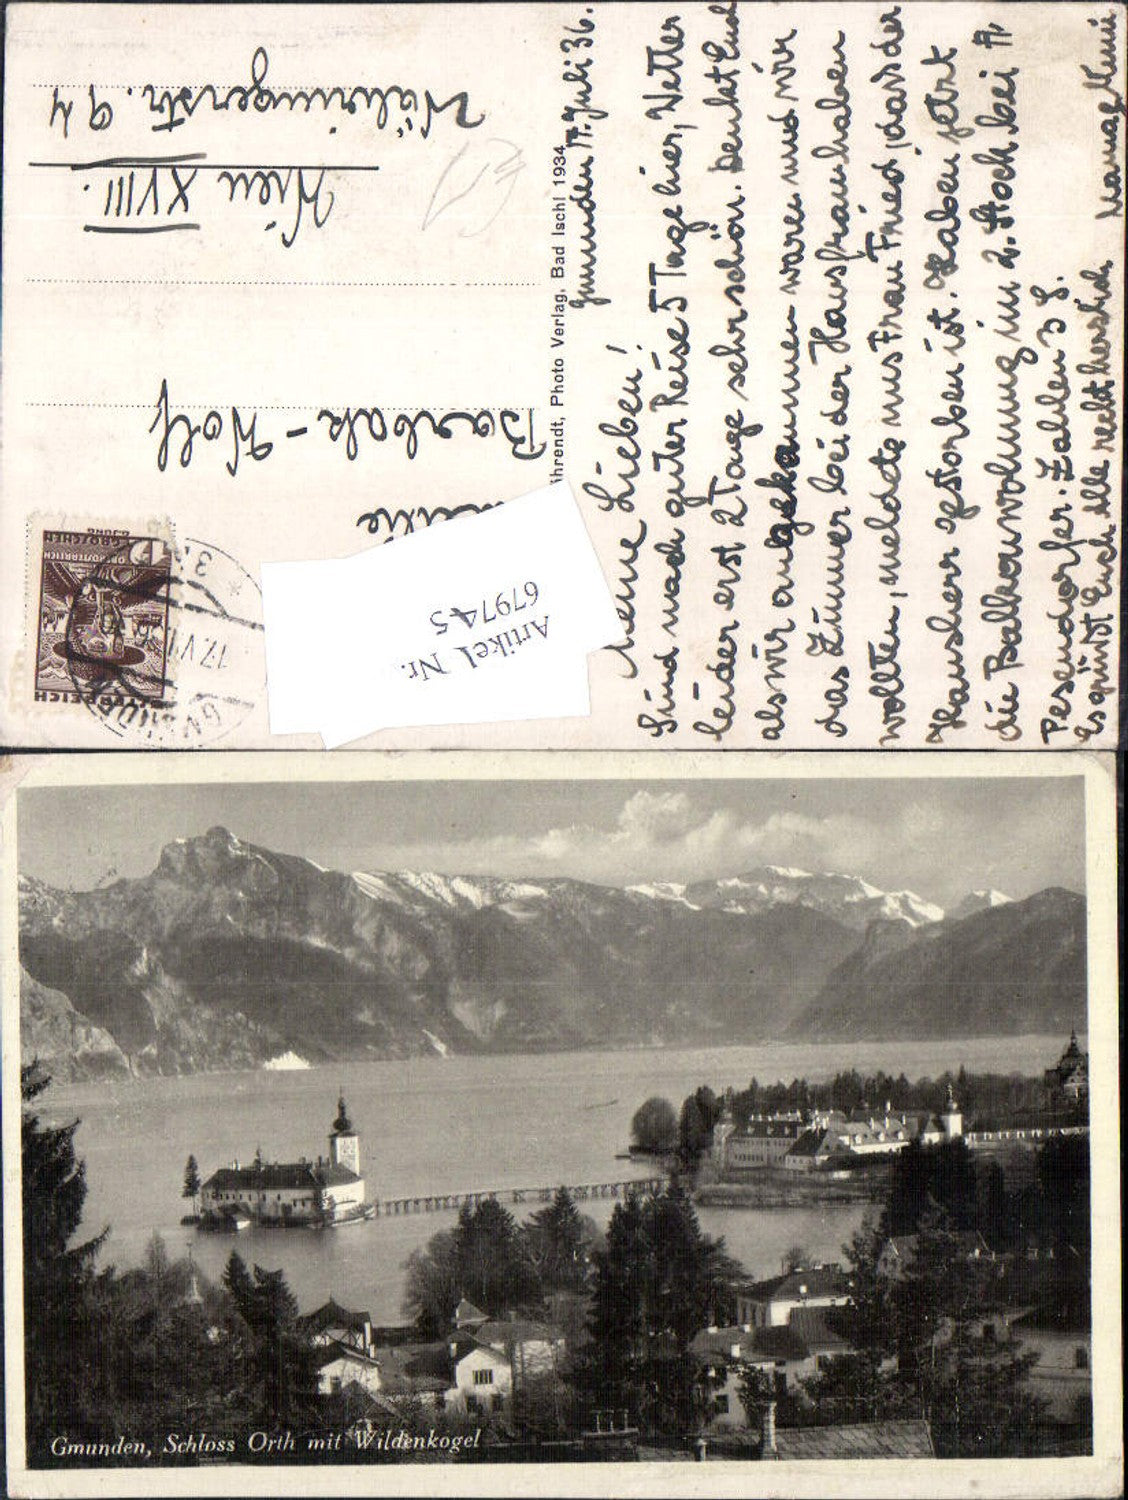 Gmunden 17. Juli 36.
Meine Lieben!
Sind nach guter Reise 5 Tage hier, Wetter
leider erst 2 Tage sehr schön. Denkt Euch
als wir angekommen waren und wir
das Zimmer bei der Hausfrau haben
wollten, meldete uns Frau Fried, dass der
Hausherr gestorben ist. Haben jetzt
die Balkonwohnung im 2. Stock bei
Pesendorfer. Zahlen 3 S.
Es grüsst Euch Alle recht herzlich
Mama Mimi
Photo Verlag, Bad Ischl 1934
Barbak-Wolf
Wien XVIII.
Währingerstr. 94
ÖSTERREICH
OBERÖSTERREICH
GROSCHEN
GMUNDEN
17.VI
3
Artikel Nr.
67974-5
Gmunden, Schloss Orth mit Wildenkogel